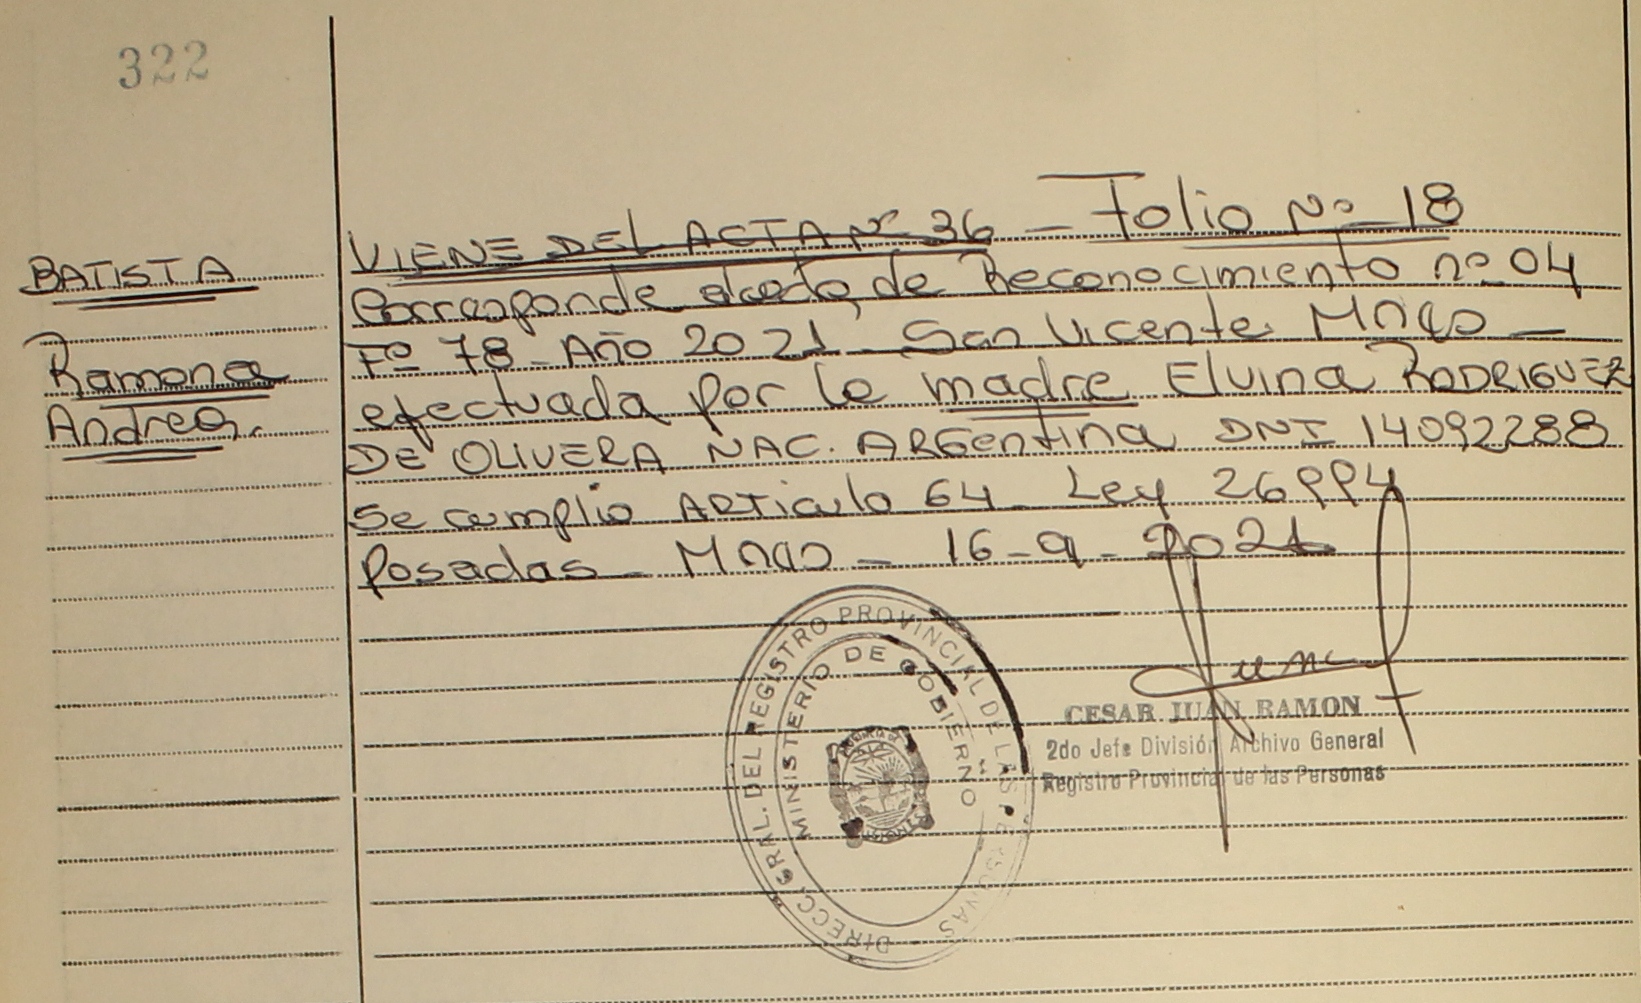 322
BATISTA
Ramona
Andrea.
VIENE DEL ACTA Nº 36 — Folio Nº 18
Corresponde al acta de Reconocimiento nº 04
Fº 78 - Año 2021 - San Vicente Mnes —
efectuada por la madre Elvina RODRIGUEZ
DE OLIVERA NAC. ARGentina DNI 14092288
Se cumplio ARTiculo 64 - Ley 26994
Posadas - Mnes - 16-9-2021
CESAR JUAN RAMON
2do Jefe División Archivo General
Registro Provincial de las Personas
DIRECC. GRAL. DEL REGISTRO PROVINCIAL DE LAS PERSONAS
MINISTERIO DE GOBIERNO